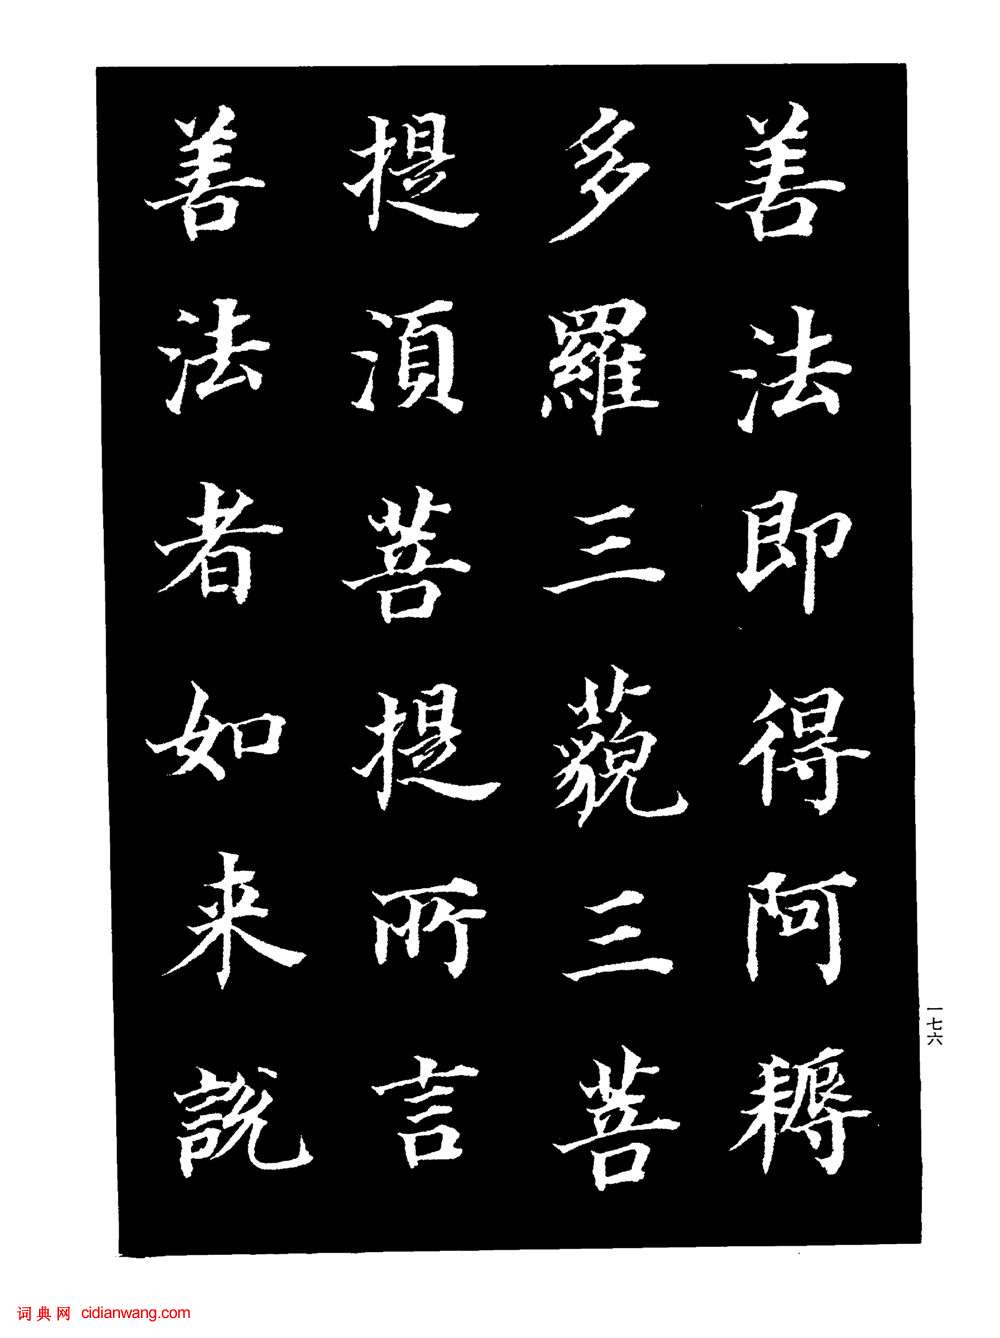 善法即得阿耨
多羅三藐三菩
提湏菩提所言
善法者如来說
一七六
词典网 cidianwang.com